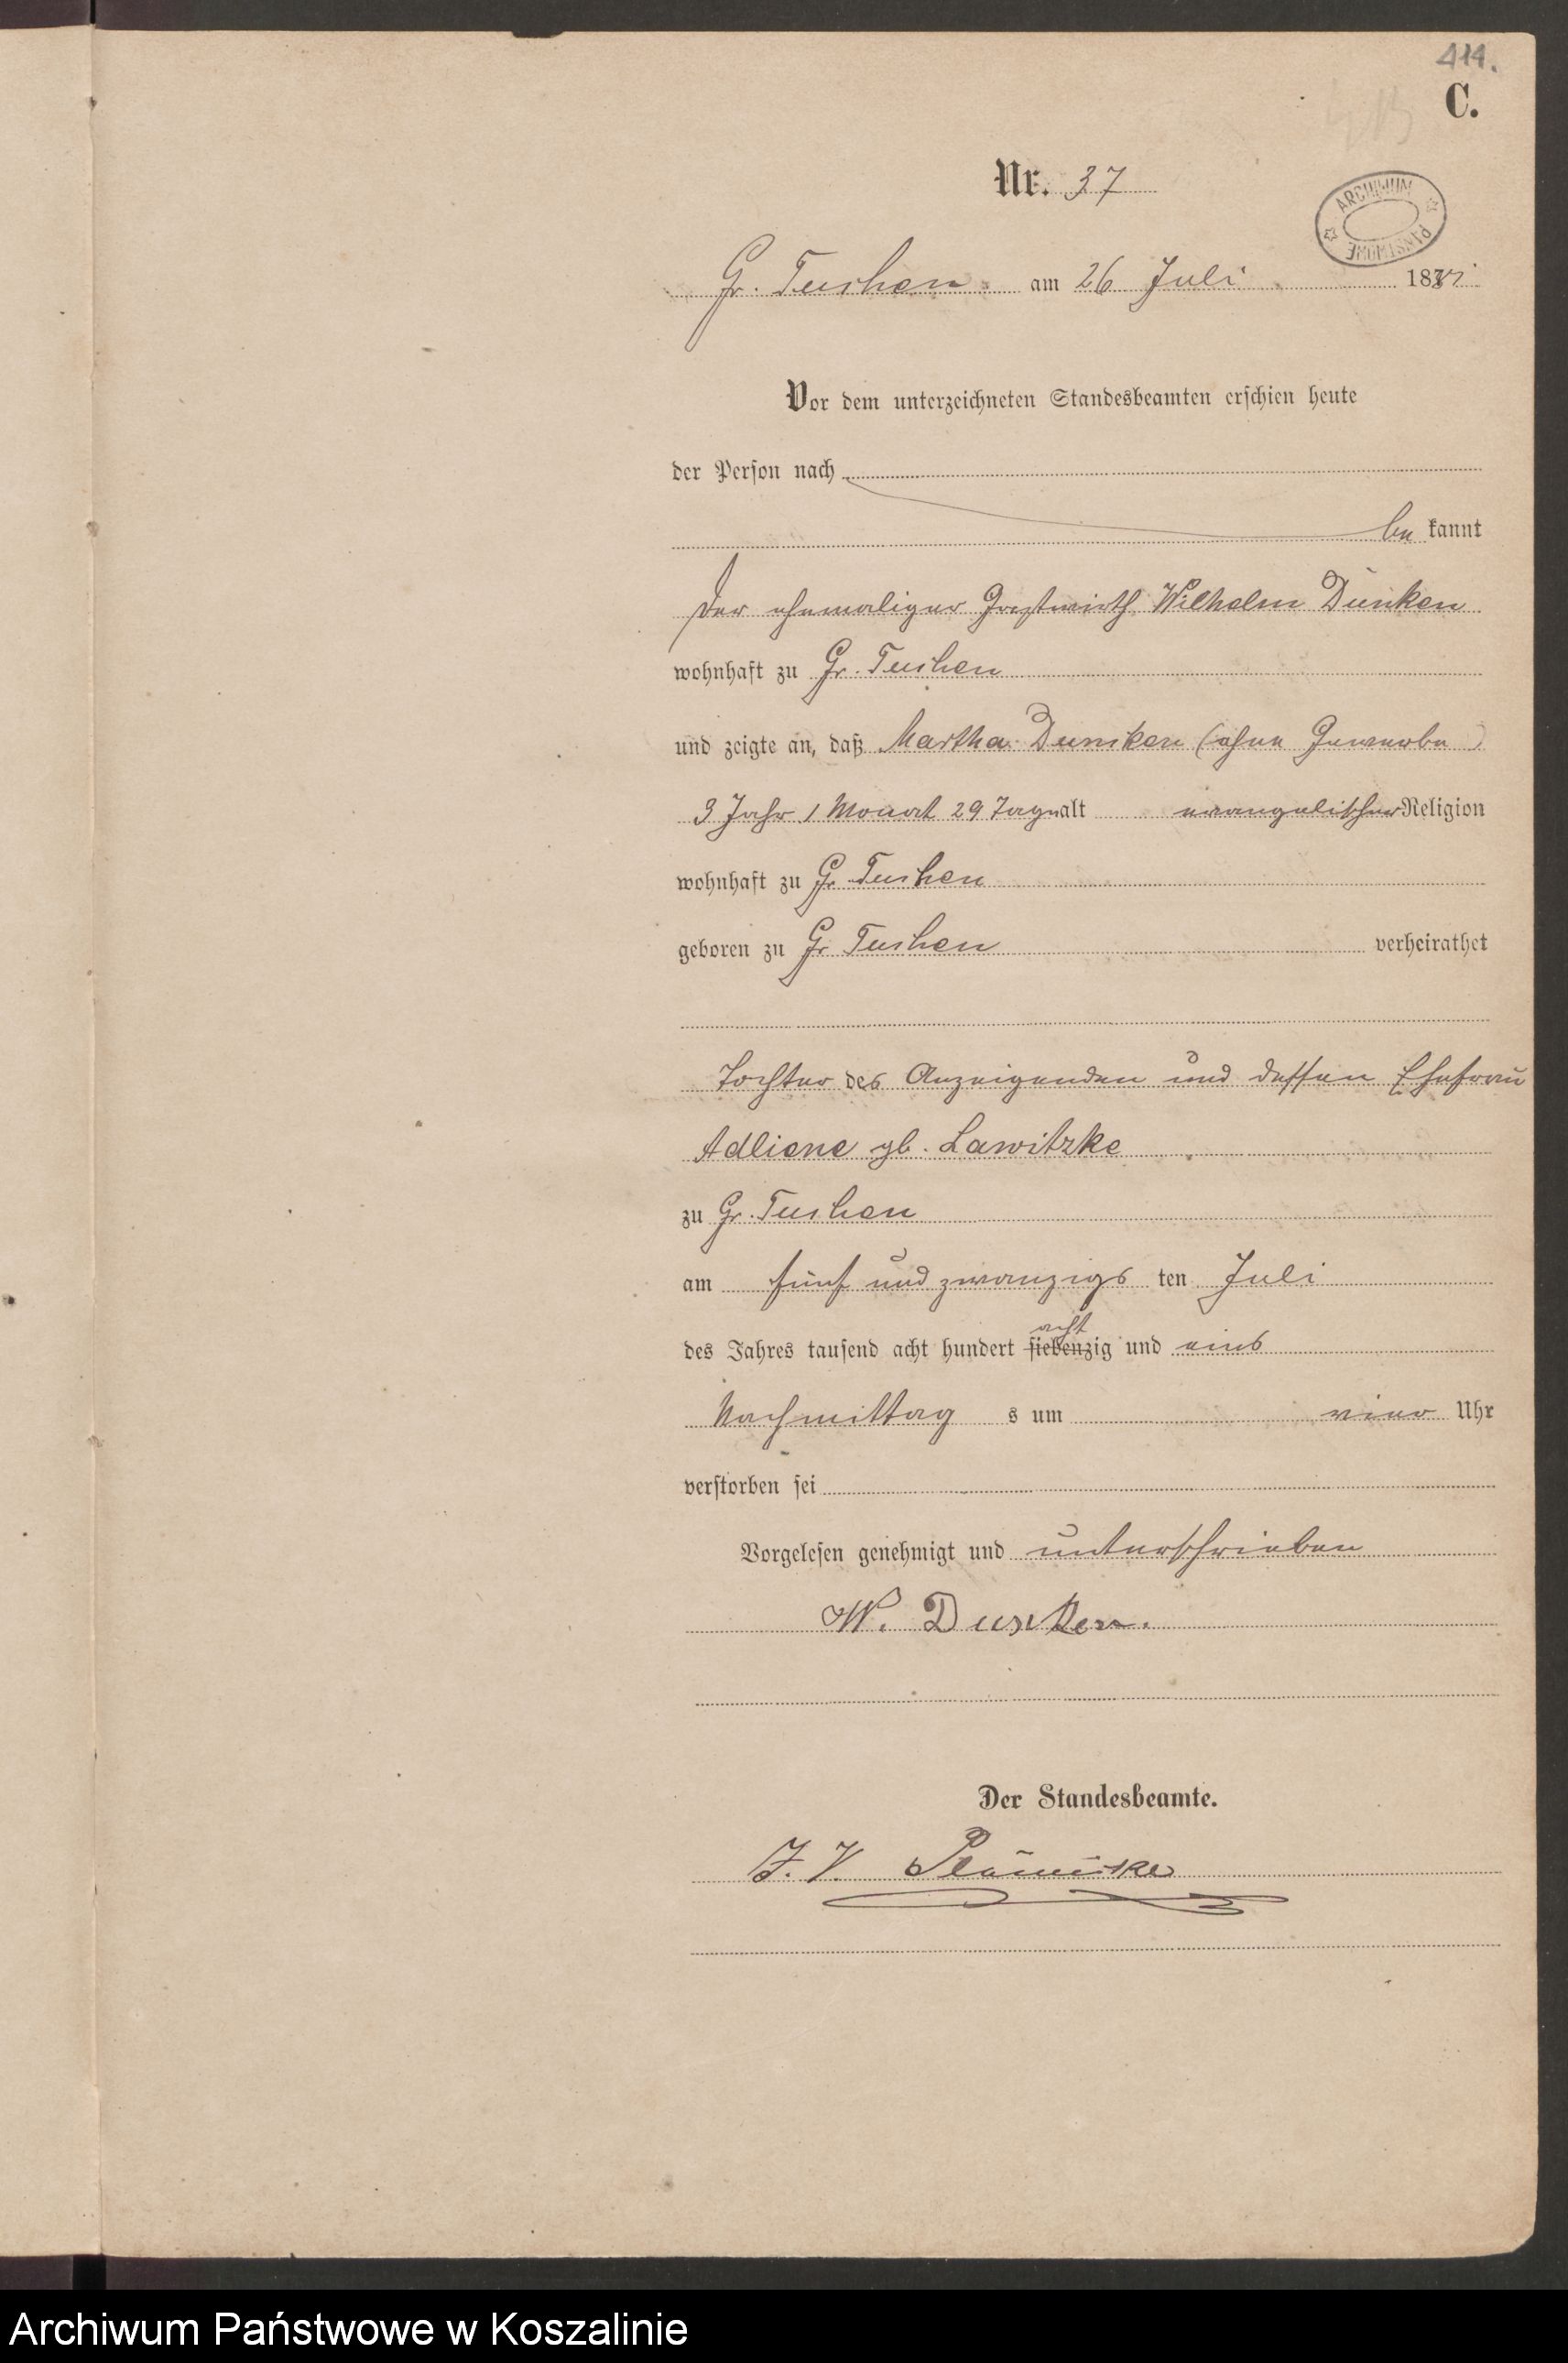 414.
C.
Nr. 37
ARCHIWUM PAŃSTWOWE
Gr. Tuchen am 26 Juli 1881
Vor dem unterzeichneten Standesbeamten erschien heute
der Person nach
be kannt
Der ehemaliger Gastwirth Wilhelm Dunken
wohnhaft zu Gr. Tuchen
und zeigte an, daß Martha Dunken (ohne Gewerbe)
3 Jahr 1 Monat 29 Tage alt evangelischer Religion
wohnhaft zu Gr. Tuchen
geboren zu Gr. Tuchen verheirathet
Tochter des Anzeigenden und dessen Ehefrau
Adliene gb. Lawitzke
zu Gr. Tuchen
am fünf und zwanzigs ten Juli
des Jahres tausend acht hundert siebenzig acht und eins
Nachmittag s um vier Uhr
verstorben sei
Vorgelesen genehmigt und unterschrieben
W. Dunken.
Der Standesbeamte.
J. V.
Archiwum Państwowe w Koszalinie